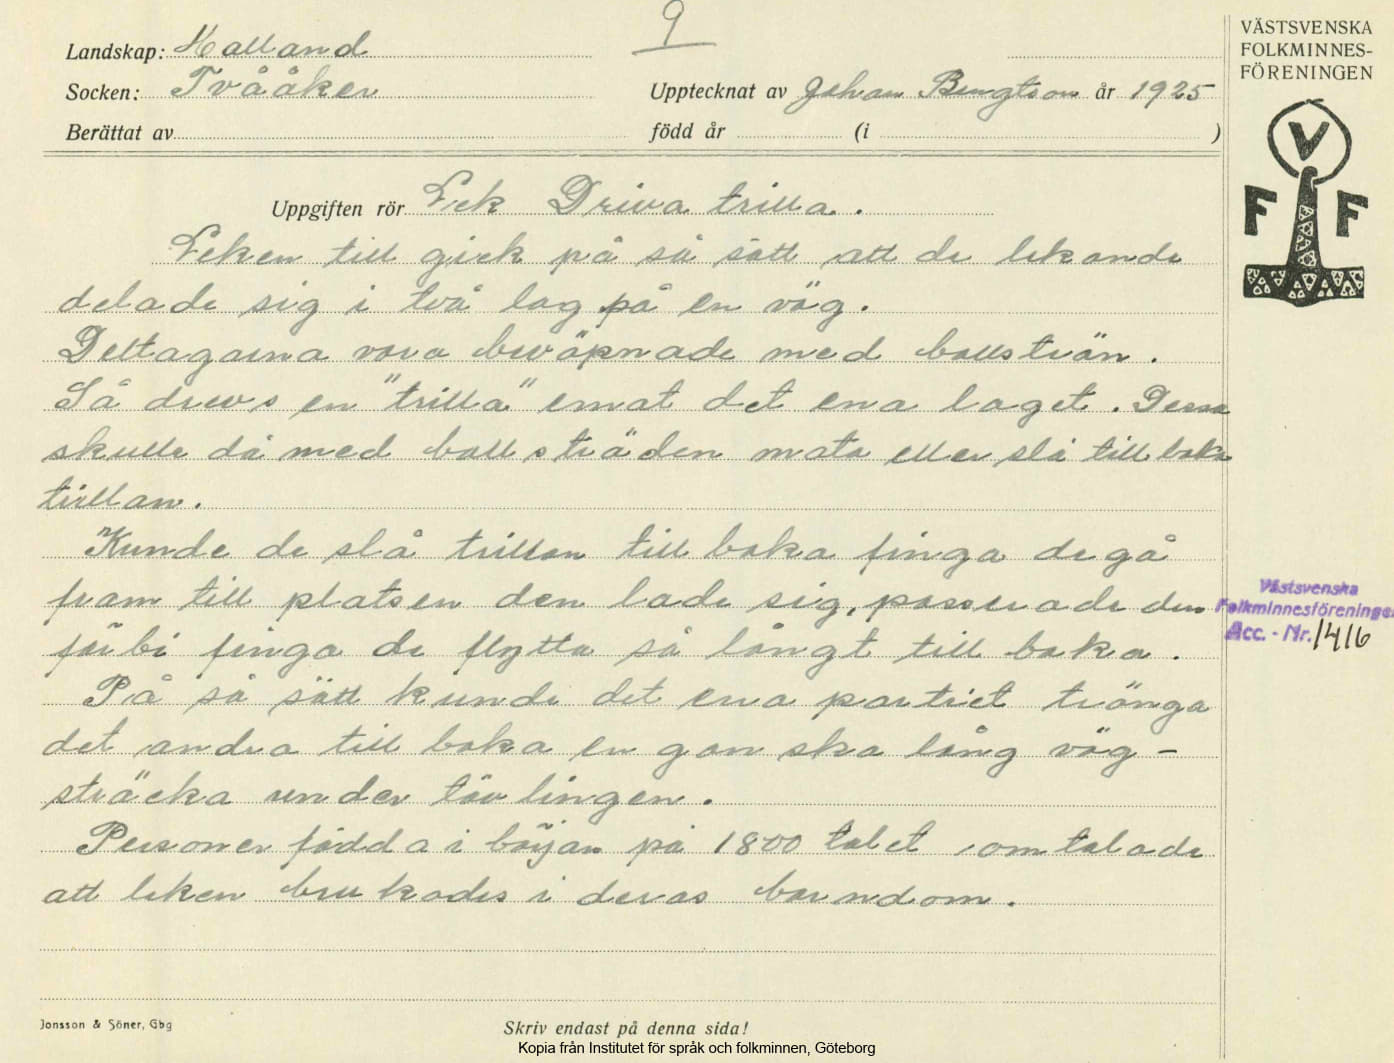 9
Landskap: Halland
Socken: Tvååker
Upptecknat av Johan Bengtson år 1925
Berättat av
född år (i )
VÄSTSVENSKA
FOLKMINNES-
FÖRENINGEN
V
F F
Uppgiften rör Lek Driva trilla.
Leken till gick på så sätt att de lekande
delade sig i två lag på en väg.
Deltagarna vora beväpnade med bollsträn.
Så drevs en "trilla" emot det ena laget. Dessa
skulle då med bollsträden mota eller slå till baka
trillan.
Kunde de slå trillan till baka finga de gå
fram till platsen den lade sig, passerade den
förbi finga de flytta så långt till baka.
På så sätt kunde det ena partiet tränga
det andra till baka en gan ska lång väg-
sträcka under tävlingen.
Personer födda i början på 1800 talet omtalade
att leken brukades i deras barndom.
Västsvenska
Folkminnesföreningen
Acc. - Nr. 1416
Jonsson & Söner, Gbg
Skriv endast på denna sida!
Kopia från Institutet för språk och folkminnen, Göteborg